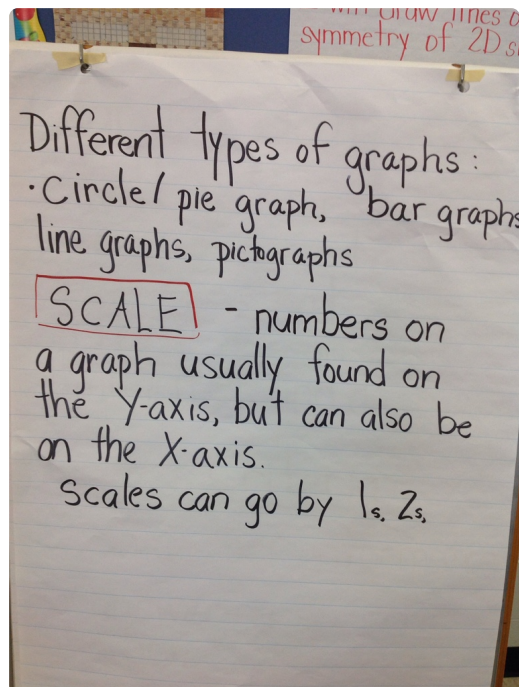 will draw lines o
symmetry of 2D s
Different types of graphs:
·Circle/ pie graph, bar graphs
line graphs, pictographs
SCALE - numbers on
a graph usually found on
the Y-axis, but can also be
on the X-axis.
Scales can go by 1s, 2s,